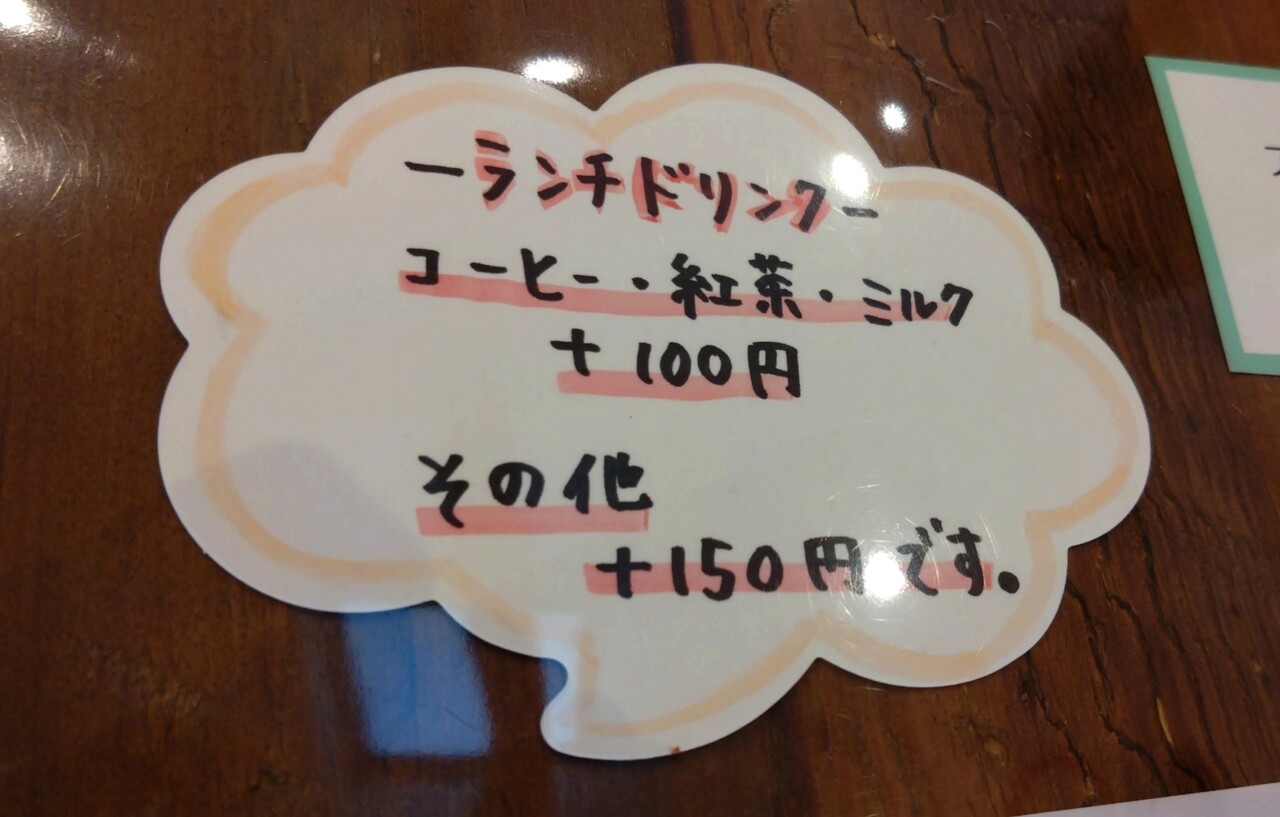 ーランチドリンクー
コーヒー・紅茶・ミルク
+100円
その他
+150円です。